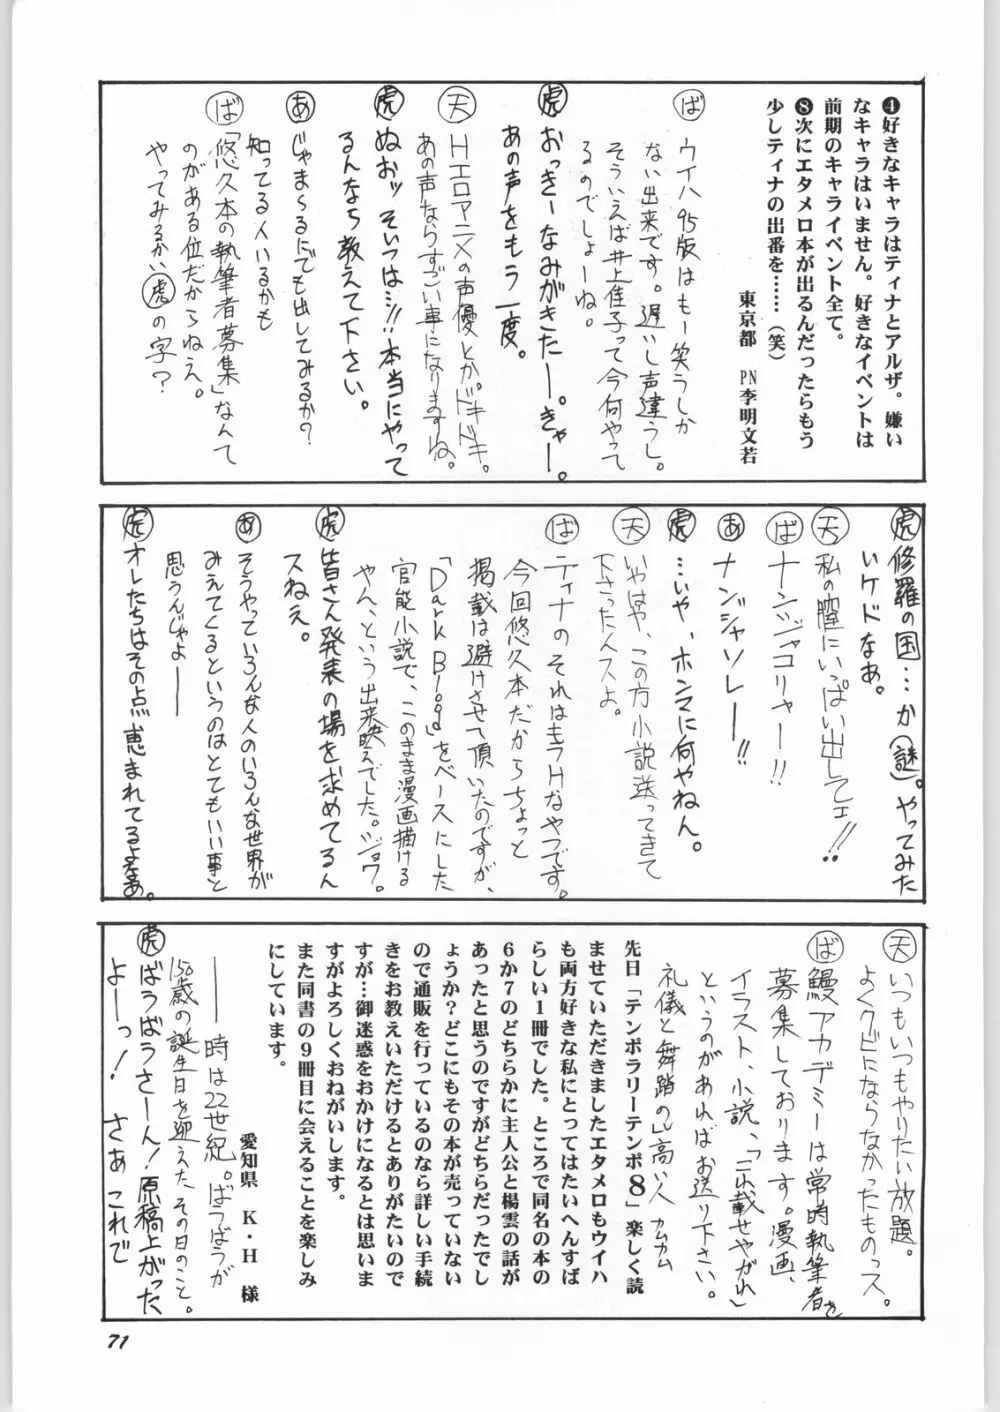 ❹好きなキャラはティナとアルザ。嫌い
なキャラはいません。好きなイベントは
前期のキャライベント全て。
❽次にエタメロ本が出るんだったらもう
少しティナの出番を……（笑）
東京都　PN李明文若
ば ウイハ95版はもー笑うしか
ない出来です。遅いし声違うし。
そういえば井上佳子って今何やって
るのでしょーね。
虎 おっきーなみがきたー。きゃー。
あの声をもう一度。
天 Hエロアニメの声優とか。ドキドキ。
あの声ならすごい事になりますね。
虎 ぬおッそいつは…!!本当にやって
るんなら教えて下さい。
あ じゃまーるにでも出してみるか?
知ってる人いるかも
ば「悠久本の執筆者募集」なんて
のがある位だからねえ。
やってみるかい虎の字?
虎 修羅の国…か(謎)。やってみた
いケドなあ。
天 私の瞳にいっぱい出してェ!!
ば ナンジャコリャー!!
あ ナンジャソレ――!!
虎 …いや、ホンマに何やねん。
天 いやはや、この方小説送ってきて
下さった人スよ。
ば ティナのそれはもうHなやつです。
今回悠久本だからちょっと
掲載は避けさせて頂いたのですが、
「Dark Blood」をベースにした
官能小説で、このまま漫画描ける
やん、という出来映えでした。ジョウ。
虎 皆さん発表の場を求めてるん
スねえ。
あ そうやっていろんな人のいろんな世界が
みえてくるというのはとてもいい事と
思うんじゃよ――
虎 オレたちはその点恵まれてるよなあ。
天 いつもいつもやりたい放題。
よくクビにならなかったものっス。
ば 鰻アカデミーは常時執筆者を
募集しております。漫画、
イラスト、小説、「これ載せやがれ」
というのがあればお送り下さい。
礼儀と舞踏の心高い人 カムカム
先日「テンポラリーテンポ8」楽しく読
ませていただきましたエタメロもウイハ
も両方好きな私にとってはたいへんすば
らしい1冊でした。ところで同名の本の
6か7のどちらかに主人公と楊雲の話が
あったと思うのですがどちらだったでし
ょうか?どこにもその本が売っていない
ので通販を行っているのなら詳しい手続
きをお教えいただけるとありがたいので
すが…御迷惑をおかけになるとは思いま
すがよろしくおねがいします。
また同書の9冊目に会えることを楽しみ
にしています。
愛知県　K・H　様
――時は22世紀。ばうばうが
150歳の誕生日を迎えたその日のこと。
虎 ばうばうさーん!原稿上がった
よーっ! さあこれで
71